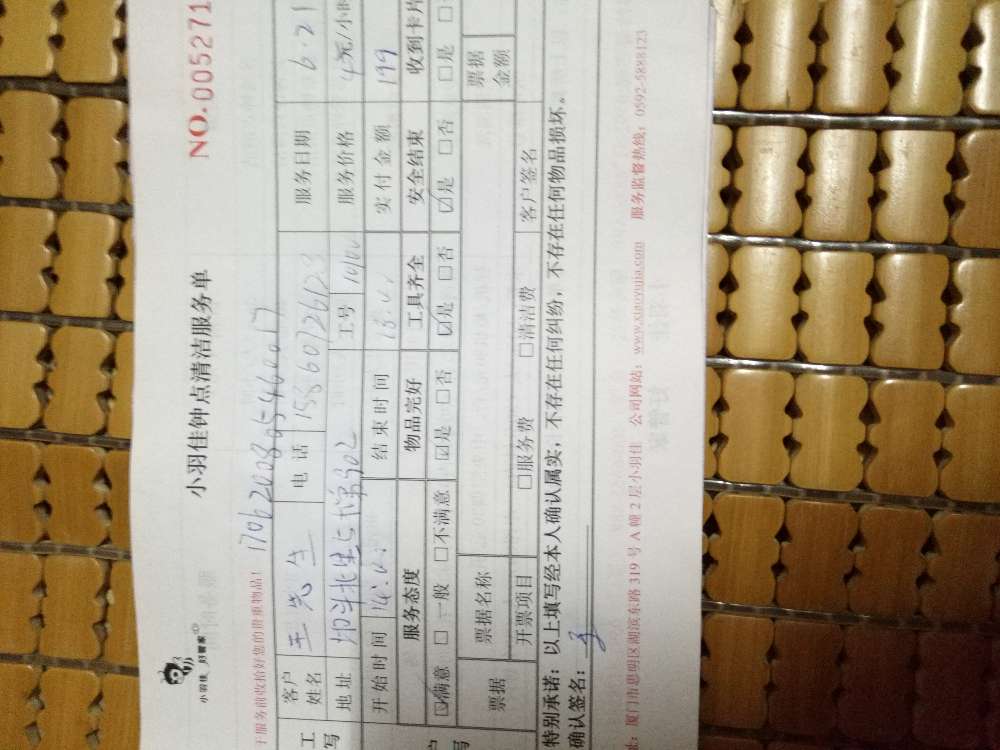 小羽佳 好管家
小羽佳钟点清洁服务单
NO.005271
于服务前收拾好您的贵重物品!
客户姓名 王先生 电话 服务日期 6.21
地址 工号 服务价格 元/小时
开始时间 结束时间 实付金额 199
服务态度 物品完好 工具齐全 安全结束 收到卡片
☑满意 □一般 □不满意 ☑是 □否 ☑是 □否 ☑是 □否 □是
票据 票据名称 票据金额
开票项目 □服务费 □清洁费 客户签名
特别承诺:以上填写经本人确认属实,不存在任何纠纷,不存在任何物品损坏。
确认签名:
址:厦门市思明区湖滨东路319号A幢2层小羽佳 公司网站:www.xiaoyujia.com 服务监督热线:0592-5888123